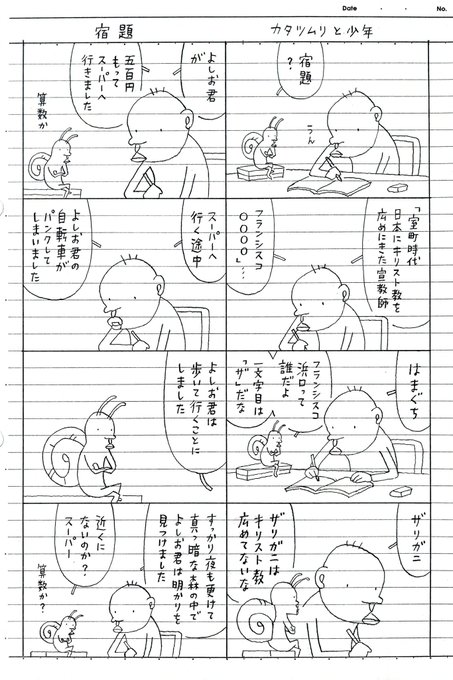 Date ・ ・ No.
カタツムリと少年
宿題
?
うん
「室町時代
日本にキリスト教を
広めにきた宣教師
フランシスコ
○○○○」…
はまぐち
フランシスコ
浜口って
誰だよ
一文字目は
「ザ」だな
ザリガニ
ザリガニは
キリスト教
広めてないな
宿題
よしお君
が
五百円
もって
スーパーへ
行きました
算数か
スーパーへ
行く途中
よしお君の
自転車が
パンクして
しまいました
よしお君は
歩いて行くことに
しました
すっかり夜も更けて
真っ暗な森の中で
よしお君は明かりを
見つけました
近くに
ないのか?
スーパー
算数か?